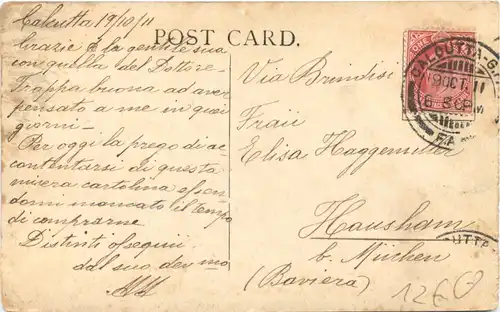 Calcutta 19/10/11
Grazie p la gentile sua
con quella del Dottore-
Troppa buona ad aver
pensato a me in quei
giorni-
Per oggi la prego di ac
contentarsi di questa
misera cartolina essen
domi mancato il tempo
di comprarne
Distinti ossequii
dal suo dev mo
POST CARD.
Via Brindisi
Elisa Haggenmiller
Hausham
b. Miichen
(Baviera)
CALCUTTA-G
19 OCT. 11
UTTA
1260